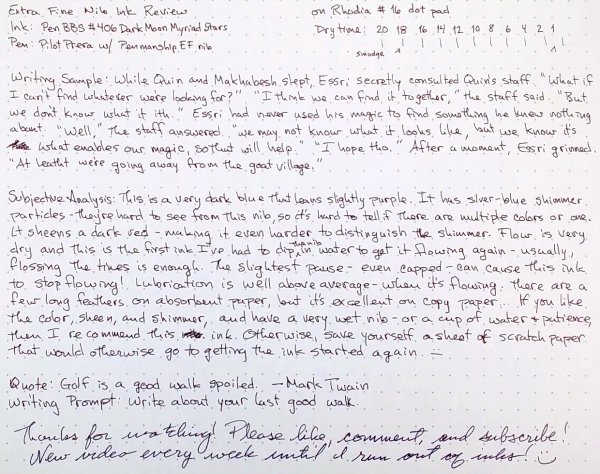 Extra Fine Nib Ink Review on Rhodia #16 dot pad
Ink: Pen BBS #406 Dark Moon Myriad Stars Dry time: 20 18 16 14 12 10 8 6 4 2 1
Pen: Pilot Prera w/ Penmanship EF nib smudge
Writing Sample: While Quin and Makhabesh slept, Essri secretly consulted Quin's staff. "What if
I can't find whatever we're looking for?" "I think we can find it together," the staff said. "But
we don't know what it ith." Essri had never used his magic to find something he knew nothing
about. "Well," the staff answered, "we may not know what it looks like, but we know it's
what enables our magic, so that will help." "I hope tho." After a moment, Essri grinned.
"At leatht we're going away from the goat village."
Subjective Analysis: This is a very dark blue that leans slightly purple. It has silver-blue shimmer
particles - they're hard to see from this nib, so it's hard to tell if there are multiple colors or one.
It sheens a dark red - making it even harder to distinguish the shimmer. Flow is very
dry and this is the first ink I've had to dip the nib in water to get it flowing again - usually,
flossing the tines is enough. The slightest pause - even capped - can cause this ink
to stop flowing! Lubrication is well above average - when it's flowing. There are a
few long feathers on absorbent paper, but it's excellent on copy paper... If you like
the color, sheen, and shimmer, and have a very wet nib - or a cup of water & patience,
then I recommend this ink. Otherwise, save yourself a sheet of scratch paper
that would otherwise go to getting the ink started again.
Quote: Golf is a good walk spoiled. - Mark Twain
Writing Prompt: Write about your last good walk.
Thanks for watching! Please like, comment, and subscribe!
New video every week until I run out of inks!